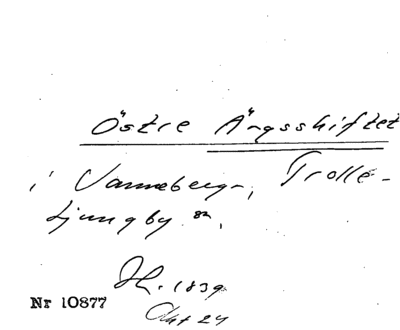 Östre Ängsskiftet
i Vanneberga, Trolle-
Ljungby sn.
H. 1839
Okt 24
Nr 10877